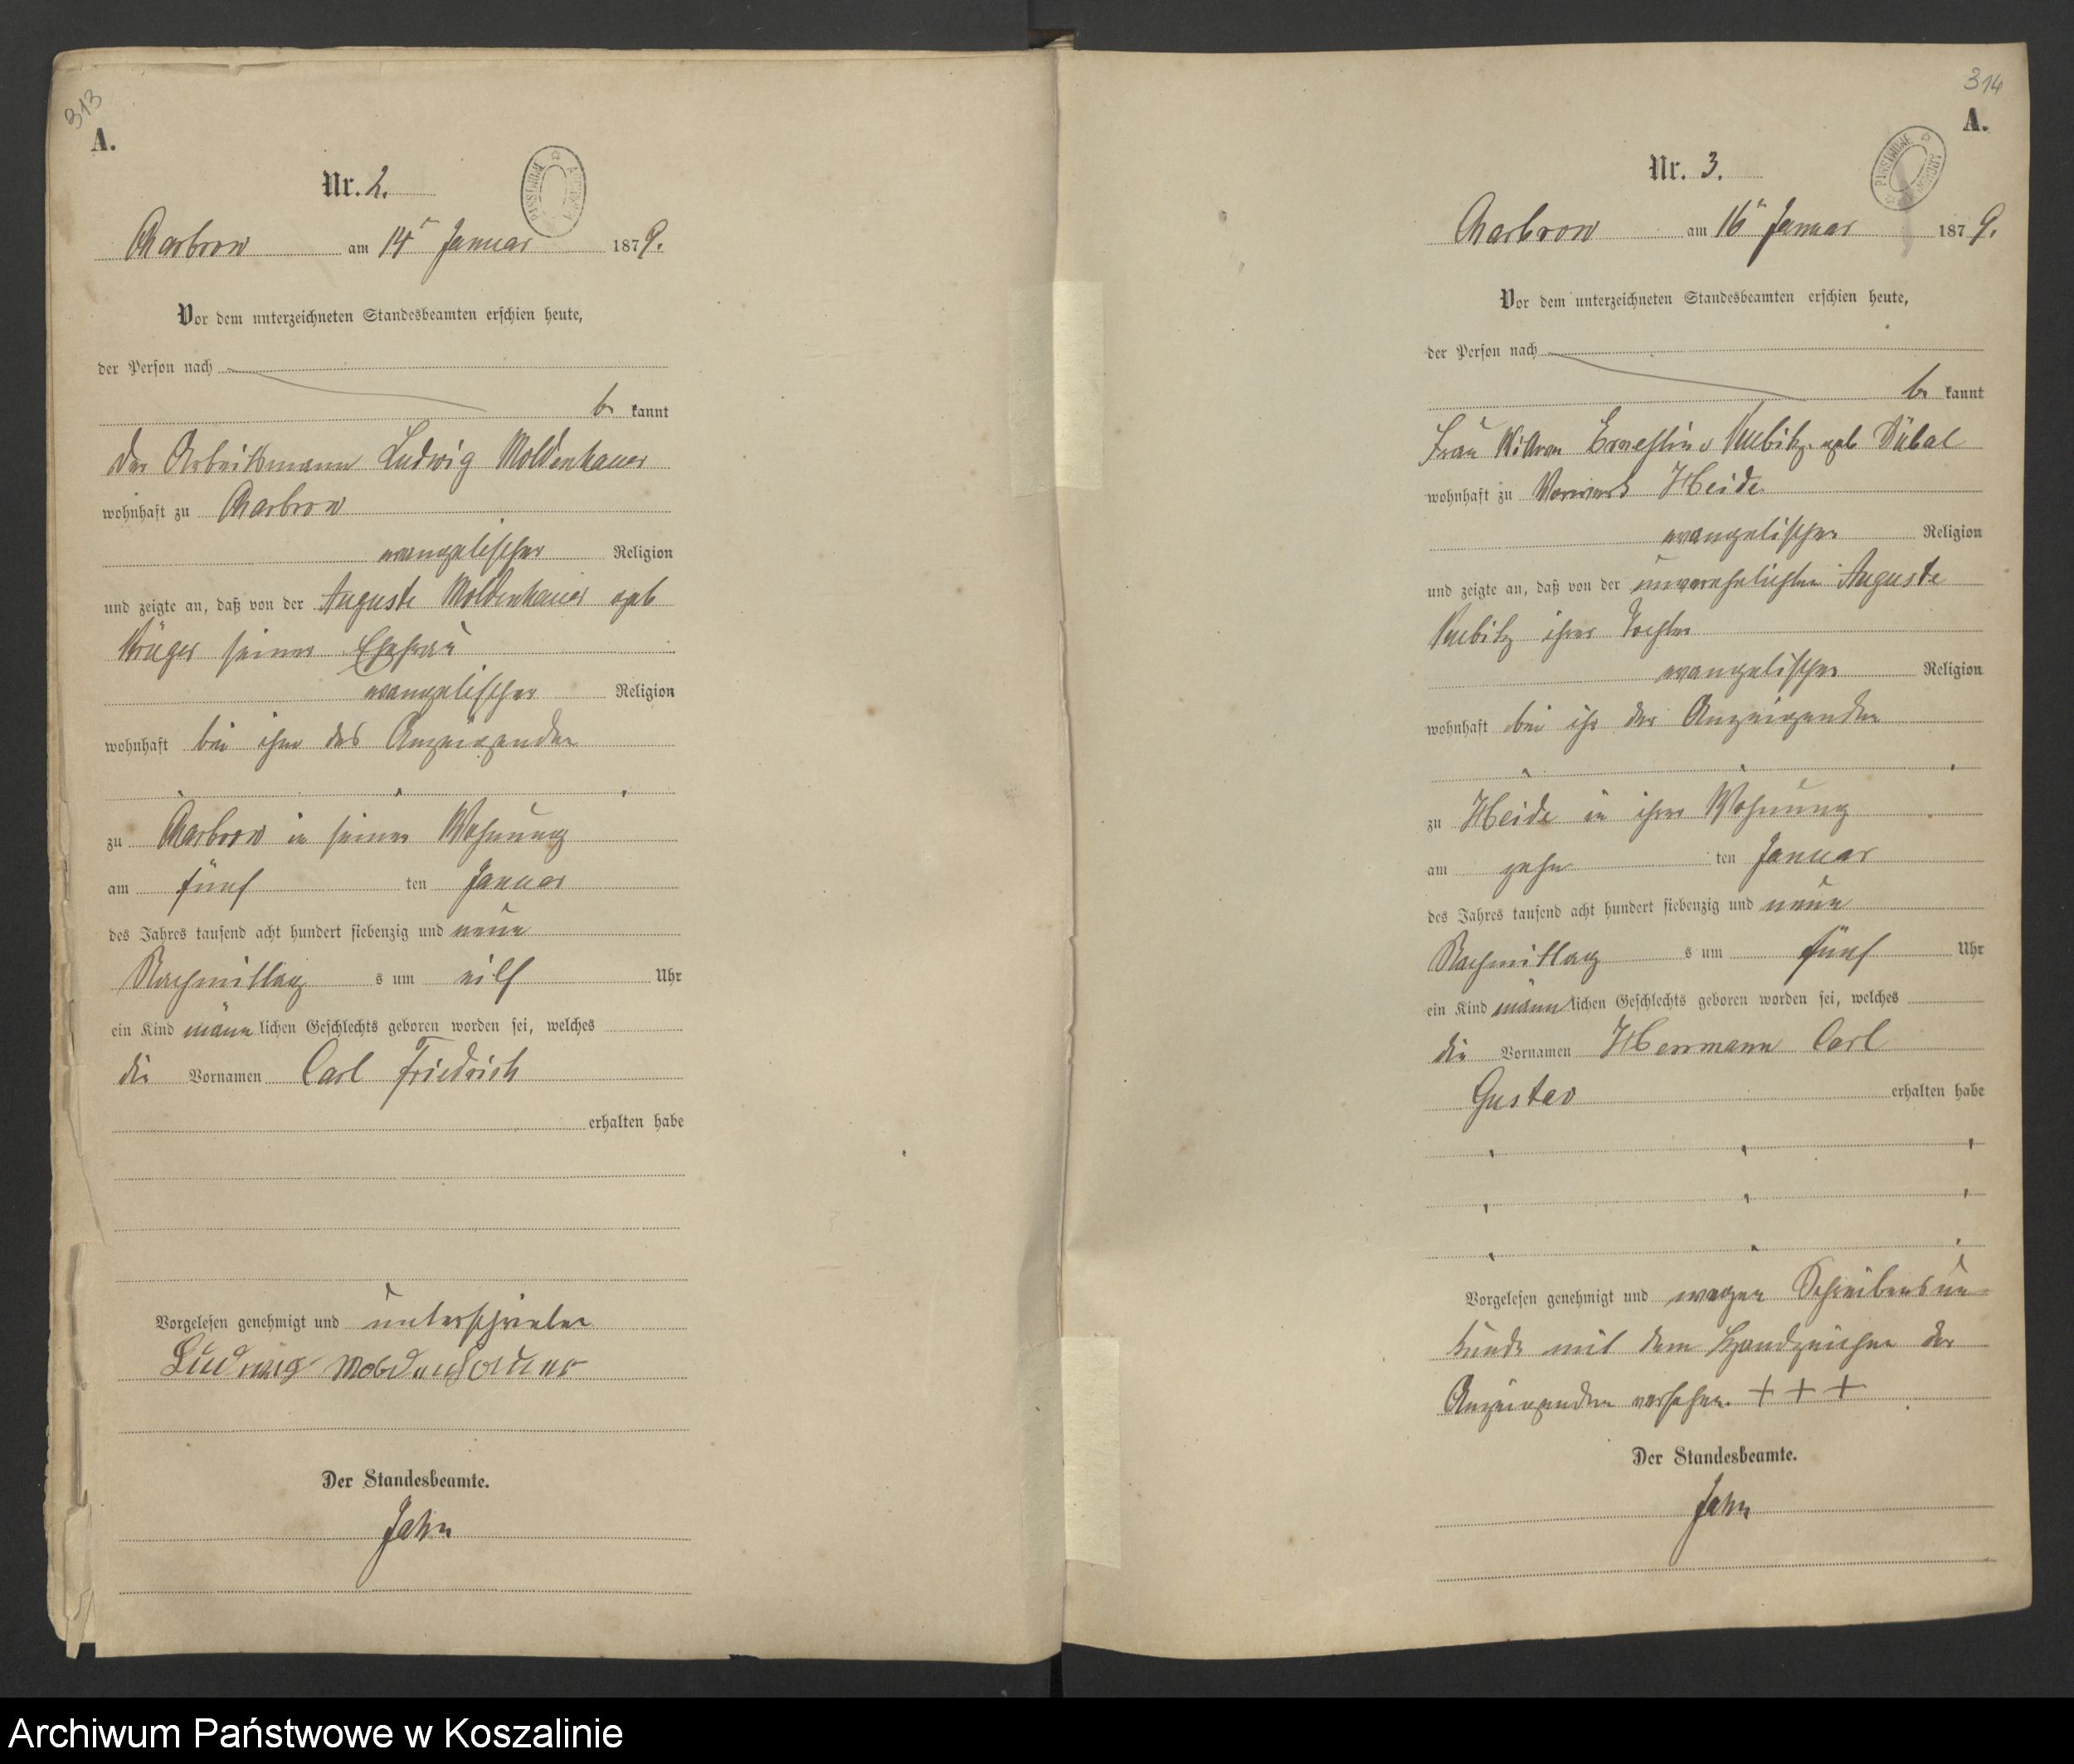 313
A.
Nr. 2.
Charbrow am 14ͭ Januar 1879.
Vor dem unterzeichneten Standesbeamten erschien heute,
der Person nach
be kannt
der Arbeitsmann Ludwig Moldenhauer
wohnhaft zu Charbrow
evangelischer Religion
und zeigte an, daß von der Auguste Moldenhauer geb
Krüger seiner Ehefrau
evangelischer Religion
wohnhaft bei ihm des Anzeigenden
zu Charbrow in seiner Wohnung
am fünf ten Januar
des Jahres tausend acht hundert siebenzig und neun
Nachmittag s um eilf Uhr
ein Kind männ lichen Geschlechts geboren worden sei, welches
die Vornamen Carl Friedrich
erhalten habe
Vorgelesen genehmigt und unterschrieben
Ludwig Moldenhauer
Der Standesbeamte.
Jahn
314
A.
ARCHIWUM PAŃSTWOWE
Nr. 3.
Charbrow am 16ͭ Januar 1879.
Vor dem unterzeichneten Standesbeamten erschien heute,
der Person nach
be kannt
Frau Ernestine Kubitz geb
wohnhaft zu Vorwerk Heide
evangelischer Religion
und zeigte an, daß von der unverehelichten Auguste
Kubitz ihrer Tochter
evangelischer Religion
wohnhaft bei ihr der Anzeigenden
zu Heide in ihrer Wohnung
am zehn ten Januar
des Jahres tausend acht hundert siebenzig und neun
Nachmittag s um fünf Uhr
ein Kind männ lichen Geschlechts geboren worden sei, welches
die Vornamen Herrmann Carl
Gustav erhalten habe
Vorgelesen genehmigt und wegen Schreibensun-
kunde mit dem Handzeichen der
Anzeigenden versehen. + + +
Der Standesbeamte.
Jahn
Archiwum Państwowe w Koszalinie